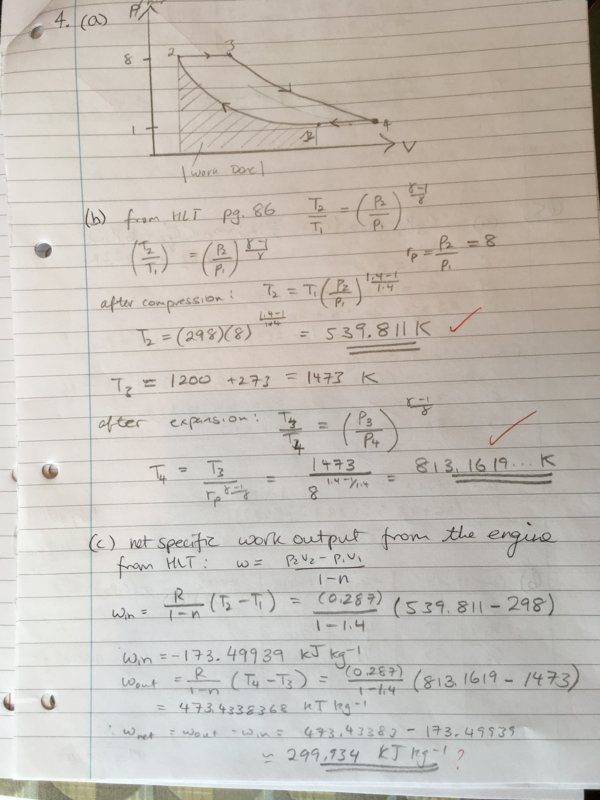 4. (a)
P
8
2
3
1
4
V
|work Done|
(b) from HLT pg. 86 T₂/T₁ = (P₂/P₁)^(γ-1/γ)
(T₂/T₁) = (P₂/P₁)^(γ-1/γ) rₚ = P₂/P₁ = 8
after compression: T₂ = T₁(P₂/P₁)^(1.4-1/1.4)
T₂ = (298)(8)^(1.4-1/1.4) = 539.811 K ✓
T₃ = 1200 + 273 = 1473 K
after expansion: T₃/T₄ = (P₃/P₄)^(γ-1/γ)
T₄ = T₃/rₚ^(γ-1/γ) = 1473/8^(1.4-1/1.4) = 813.1619... K ✓
(c) net specific work output from the engine
from HLT: w = P₂V₂ - P₁V₁/1-n
win = R/1-n (T₂-T₁) = (0.287)/1-1.4 (539.811-298)
win = -173.49939 kJ kg⁻¹
wout = R/1-n (T₄-T₃) = (0.287)/1-1.4 (813.1619-1473)
= 473.4338368 kJ kg⁻¹
∴ wnet = wout - win = 473.43383 - 173.49939
≈ 299.934 kJ kg⁻¹ ?